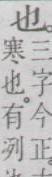 也。三字今正。
寒也。有冽